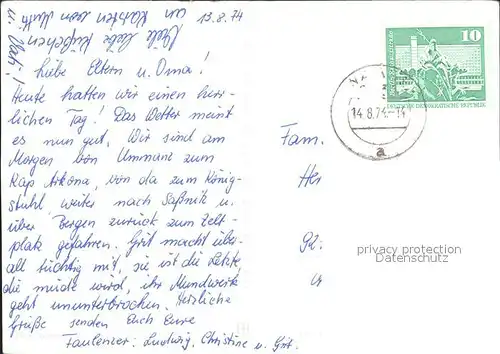 13.8.74
Viele liebe Küßchen
an Karsten von Mutti
u. Vati!
Liebe Eltern u. Oma!
Heute hatten wir einen herr-
lichen Tag! Das Wetter meint
es nun gut. Wir sind am
Morgen von Ummanz zum
Kap Arkona, von da zum König-
stuhl weiter nach Saßnitz u.
über Bergen zurück zum Zelt-
platz gefahren. Grit macht über-
all tüchtig mit, sie ist die Letzte,
die müde wird, ihr Mundwerk
geht ununterbrochen. Herzliche
Grüße senden Euch Eure
Faulenzer: Ludwig, Christine u. Grit.
10
DEUTSCHE DEMOKRATISCHE REPUBLIK
14.8.74-14
a
Fam.
Her
92.
privacy protection
Datenschutz